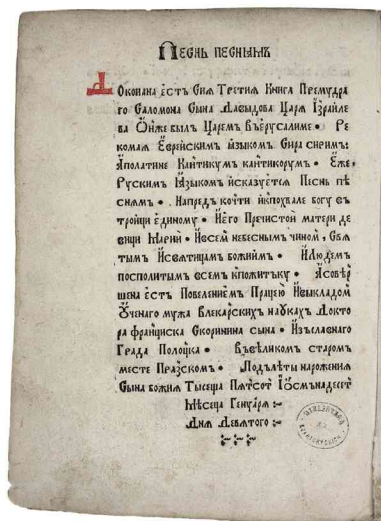 Песнь песнямъ
Доконана ѣстъ Сия Третия Книга Премудра
го Саломона Сына Давыдова Царя Ізраилѣ
ва Онже былъ Царемъ Въерусалиме • Ре
комая Еврейскимъ языком Сира сирим:
Аполатине Кантикумъ кантикорумъ • Еже
Рускимъ Языком исказуется Песнь пѣ
снямъ • Напредъ кочти икпохвале богу въ
тройци единому • Иего Пречистой матери де
вици Марии • Ивсем небесным чином, Свя
тымъ Исвятицамъ божиимъ • Илюдем
посполитым всем кпожитъку • Асовѣр
шена ѣстъ Повелениѣм Працею Ивыкладом
Ученаго мужа Влекарских науках Докто
ра франциска Скоринина сына • Изъславнаго
Града Полоцка • Въвѣликом старом
месте Празском • Подълѣты нарожения
Сына божия Тысеща Пятсот Іосмънадесет
Мѣсеца Генуаря
Дня Девятого